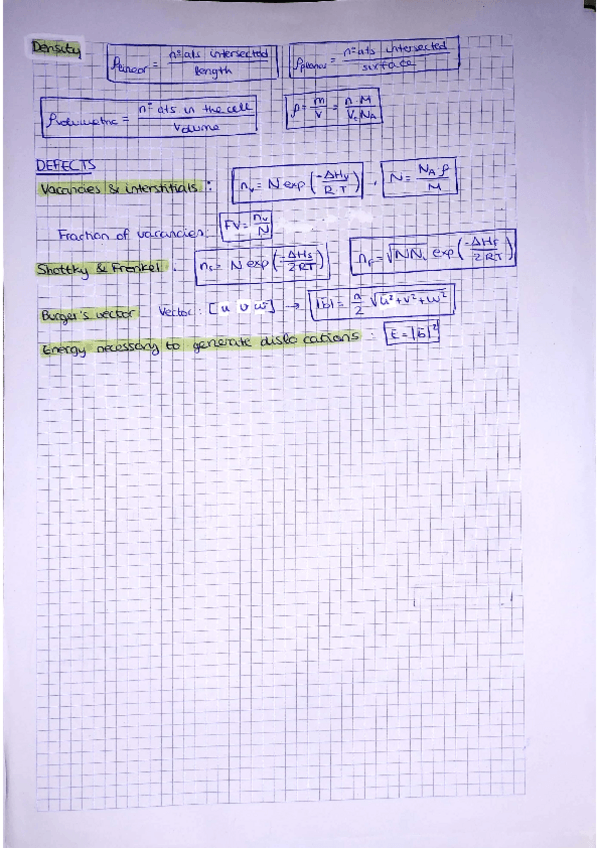 Density ρlinear = nº ats intersected / length ρplanar = nº ats intersected / surface
ρvolumetric = nº ats in the cell / Volume ρ = m/V = n·M / Vc·NA
DEFECTS
Vacancies & interstitials : nv = N exp(-ΔHv / R·T) , N = NA ρ / M
Fraction of vacancies: FV = nv / N
Shottky & Frenkel : ns = N exp(-ΔHs / 2RT) nF = √NNi exp(-ΔHF / 2RT)
Burger's vector Vector: [u v w] → |b| = a/2 √u²+v²+w²
Energy necessary to generate dislocations : E = |b|²